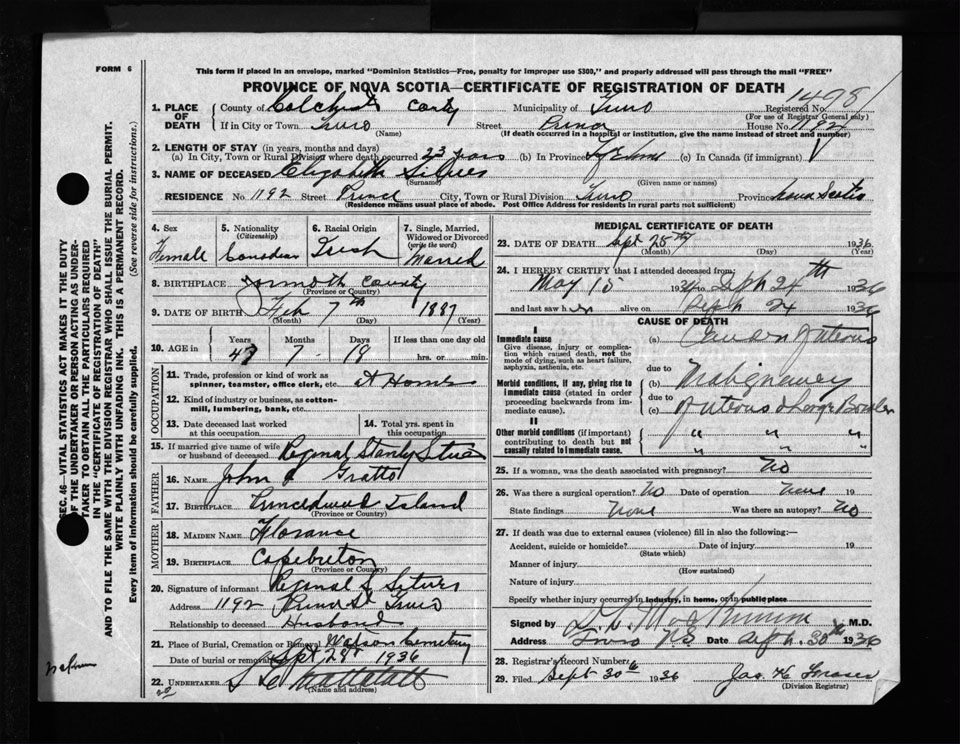 FORM 6
This form if placed in an envelope, marked "Dominion Statistics—Free, penalty for improper use $300," and properly addressed will pass through the mail "FREE"
PROVINCE OF NOVA SCOTIA—CERTIFICATE OF REGISTRATION OF DEATH
1498
1. PLACE OF DEATH County of Municipality of Truro Registered No.
(For use of Registrar General only)
If in City or Town Truro (Name) Street House No. 1192
(If death occurred in a hospital or institution, give the name instead of street and number)
2. LENGTH OF STAY (in years, months and days)
(a) In City, Town or Rural Division where death occurred 23 years (b) In Province (c) In Canada (if immigrant)
3. NAME OF DECEASED Elizabeth
(Surname) (Given name or names)
RESIDENCE No. 1192 Street Prince City, Town or Rural Division Truro Province Nova Scotia
(Residence means usual place of abode. Post Office Address for residents in rural parts not sufficient)
4. Sex Female
5. Nationality (Citizenship) Canadian
6. Racial Origin Irish
7. Single, Married, Widowed or Divorced (write the word) Married
8. BIRTHPLACE County
(Province or Country)
9. DATE OF BIRTH Feb 7th 1887
(Month) (Day) (Year)
10. AGE in Years Months Days If less than one day old
7 18 hrs. or min.
OCCUPATION
11. Trade, profession or kind of work as spinner, teamster, office clerk, etc. At Home
12. Kind of industry or business, as cotton-mill, lumbering, bank, etc.
13. Date deceased last worked at this occupation
14. Total yrs. spent in this occupation
15. If married give name of wife or husband of deceased Reginal Stanley
FATHER
16. NAME John Gratto
17. BIRTHPLACE Prince Edward Island
(Province or Country)
MOTHER
18. MAIDEN NAME Florance
19. BIRTHPLACE Cape breton
(Province or Country)
20. Signature of informant Reginal S.
Address 1192 Prince St Truro
Relationship to deceased Husband
21. Place of Burial, Cremation or Removal Watson Cemetery
Date of burial or removal Sept 28th 1936
22. UNDERTAKER
(Name and address)
MEDICAL CERTIFICATE OF DEATH
23. DATE OF DEATH Sept 25th 1936
(Month) (Day) (Year)
24. I HEREBY CERTIFY that I attended deceased from:
May 15 to Sept 24th 1936
and last saw her alive on Sept 24 1936
CAUSE OF DEATH
I
Immediate cause
Give disease, injury or complication which caused death, not the mode of dying, such as heart failure, asphyxia, asthenia, etc.
(a) Cancer of uterus
due to
Morbid conditions, if any, giving rise to immediate cause (stated in order proceeding backwards from immediate cause).
(b) Malignancy
due to
(c) of uterus & large Bowel
II
Other morbid conditions (if important) contributing to death but not causally related to immediate cause.
" " "
" "
25. If a woman, was the death associated with pregnancy? No
26. Was there a surgical operation? No Date of operation none 19
State findings None Was there an autopsy? No
27. If death was due to external causes (violence) fill in also the following:—
Accident, suicide or homicide? Date of injury 19
(State which)
Manner of injury
(How sustained)
Nature of injury
Specify whether injury occurred in industry, in home, or in public place
Signed by M.D.
Address Truro N.S. Date Sept. 30th 1936
28. Registrar's Record Number
29. Filed Sept 30th 1936 Jas. H. Fraser
(Division Registrar)
SEC. 46—VITAL STATISTICS ACT MAKES IT THE DUTY OF THE UNDERTAKER OR PERSON ACTING AS UNDERTAKER TO OBTAIN ALL THE PARTICULARS REQUIRED IN THE "CERTIFICATE OF REGISTRATION OF DEATH" AND TO FILE THE SAME WITH THE DIVISION REGISTRAR WHO SHALL ISSUE THE BURIAL PERMIT.
WRITE PLAINLY WITH UNFADING INK. THIS IS A PERMANENT RECORD.
Every item of information should be carefully supplied. (See reverse side for instructions.)